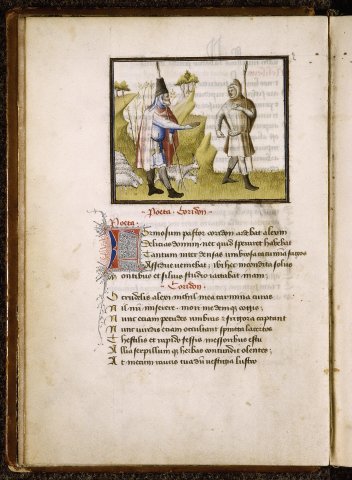 Poeta Coridon
Poeta
Formosum pastor coridon ardebat alexin
Delicias domini nec quid speraret habebat
Tantum inter densas umbrosa cacumina fagos
Assidue veniebat ibi hec incondita solus
Montibus et silvis studio iactabat inani
Coridon
O crudelis alexi nichil mea carmina curas
Nil nri miserere mori me denique cogis
Nunc etiam pecudes umbras et frigora captant
Nunc virides etiam occultant spineta lacertos
Thestilis et rapido fessis messoribus estu
Allia serpillum que herbas contundit olentes
At mecum raucis tua dum vestigia lustro